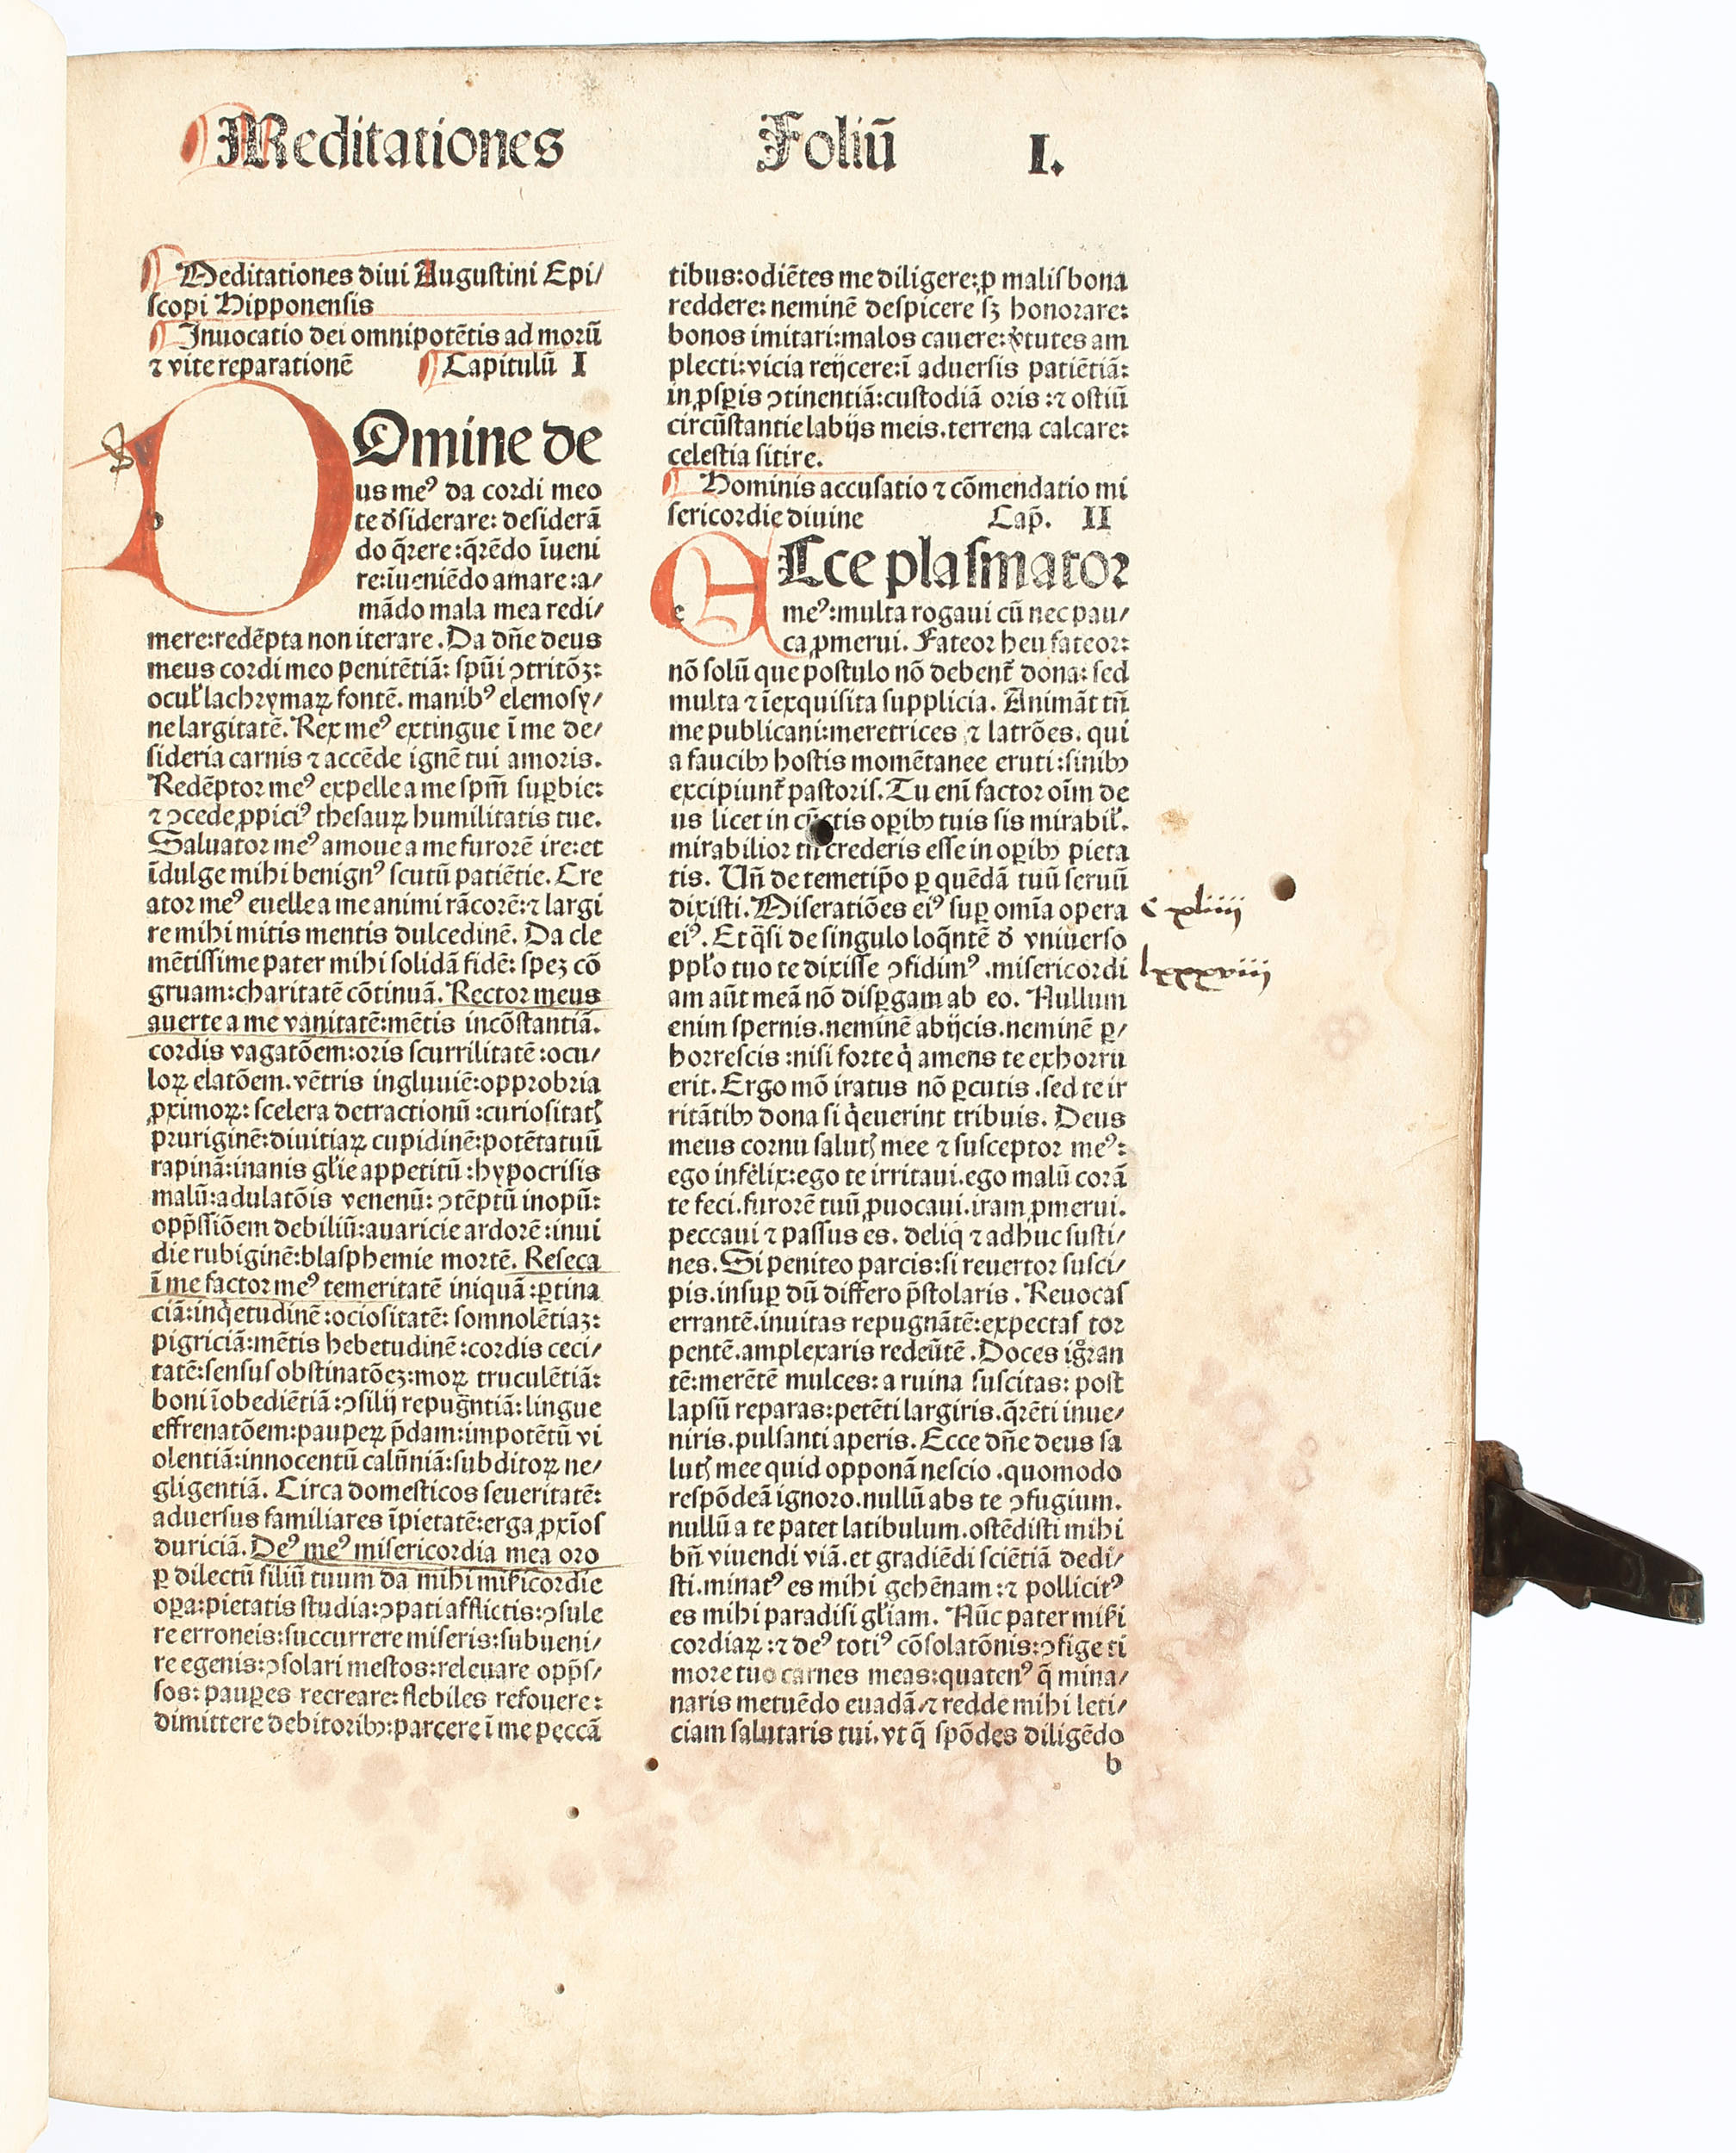 Meditationes Foliū I.
Meditationes diui Augustini Epi/
scopi Hipponensis
Inuocatio dei omnipotētis ad morū
⁊ vite reparationē Capitulū I
DOmine de
us meꝰ da cordi meo
te ď́siderare: desiderā
do q̄rere:q̄rēdo īueni
re:īueniēdo amare:a/
mādo mala mea redi/
mere:redēpta non iterare. Da dn̄e deus
meus cordi meo penitētiā: spūi ꝯtritōꝫ:
ocuł lachrymaꝝ fontē. manibꝰ elemosy/
ne largitatē. Rex meꝰ extingue ī me de/
sideria carnis ⁊ accēde ignē tui amoris.
Redēptor meꝰ expelle a me spm̄ suꝑbie:
⁊ ꝯcede ꝓpiciꝰ thesauꝝ humilitatis tue.
Saluator meꝰ amoue a me furorē ire:et
īdulge mihi benignꝰ scutū patiētie. Cre
ator meꝰ euelle a me animi rācorē:⁊ largi
re mihi mitis mentis dulcedinē. Da cle
mētissime pater mihi solidā fidē: speꝫ cō
gruam:charitatē cōtinuā. Rector meus
auerte a me vanitatē:mētis incōstantiā.
cordis vagatōem:oris scurrilitatē:ocu/
loꝝ elatōem.vētris ingluuiē:opprobria
ꝓximoꝝ: scelera detractionū:curiositatꝭ
pruriginē:diuitiaꝝ cupidinē:potētatuū
rapinā:inanis głie appetitū:hypocrisis
malū:adulatōis venenū: ꝯtēptū inopū:
opp̄ssiōem debiliū:auaricie ardorē:inui
die rubiginē:blasphemie mortē. Reseca
ī me factor meꝰ temeritatē iniquā:ꝑtina
ciā:inq̇etudinē:ociositatē: somnolētiaꝫ:
pigriciā:mētis hebetudinē:cordis ceci/
tatē:sensus obstinatōeꝫ:moꝝ truculētiā:
boni īobediētiā:ꝯsilij repugn̄tiā:lingue
effrenatōem:paupeꝝ p̄dam:impotētū vi
olentiā:innocentū calūniā:subditoꝝ ne/
gligentiā. Circa domesticos seueritatē:
aduersus familiares īpietatē:erga ꝓxīos
duriciā. Deꝰ meꝰ misericordia mea oro
ꝑ dilectū filiū tuum da mihi mīsicordie
oꝑa:pietatis studia:ꝯpati afflictis:ꝯsule
re erroneis:succurrere miseris:subueni/
re egenis:ꝯsolari mestos:releuare opp̄s/
sos: pauꝑes recreare: flebiles refouere:
dimittere debitoribꝫ:parcere ī me peccā
tibus:odiētes me diligere:ꝓ malis bona
reddere: neminē despicere sꝫ honorare:
bonos imitari:malos cauere:v̓tutes am
plecti:vicia reijcere:ī aduersis patiētiā:
in ꝓsꝑis ꝯtinentiā:custodiā oris:⁊ ostiū
circūstantie labijs meis.terrena calcare:
celestia sitire.
Hominis accusatio ⁊ cōmendatio mi
sericordie diuine Cap̄. II
ECce plasmator
meꝰ:multa rogaui cū nec pau/
ca ꝓmerui. Fateor heu fateor:
nō solū que postulo nō debent᷑ dona: sed
multa ⁊ īexquisita supplicia. Animāt tn̄
me publicani:meretrices ⁊ latrōes. qui
a faucibꝫ hostis momētanee eruti:sinibꝫ
excipiunt᷑ pastoris. Tu eni factor oīm de
us licet in cūctis oꝑibꝫ tuis sis mirabił.
mirabilior tn̄ crederis esse in oꝑibꝫ pieta
tis. Un̄ de temetip̄o ꝑ quēdā tuū seruū
dixisti. Miseratiōes eiꝰ suꝑ omīa opera
c xliiii
eiꝰ. Et q̄si de singulo loq̄ntē ď vniuerso
ppło tuo te dixisse ꝯfidimꝰ .misericordi
lxxxviii
am aūt meā nō disꝑgam ab eo. Nullum
enim spernis.neminē abijcis.neminē ꝑ/
horrescis:nisi forte q̇ amens te exhorru
erit. Ergo mō iratus nō ꝑcutis.sed te ir
ritātibꝫ dona si q̇euerint tribuis. Deus
meus cornu salutꝭ mee ⁊ susceptor meꝰ:
ego infelix:ego te irritaui.ego malū corā
te feci.furorē tuū ꝓuocaui.iram ꝓmerui.
peccaui ⁊ passus es. deliq̇ ⁊ adhuc susti/
nes. Si peniteo parcis:si reuertor susci/
pis.insuꝑ dū differo p̄stolaris. Reuocas
errantē.inuitas repugnātē:expectas tor
pentē.amplexaris redeūtē. Doces igͦran
tē:merētē mulces: a ruina suscitas: post
lapsū reparas:petēti largiris.q̄rēti inue/
niris.pulsanti aperis. Ecce dn̄e deus sa
lutꝭ mee quid opponā nescio.quomodo
respōdeā ignoro.nullū abs te ꝯfugium.
nullū a te patet latibulum.ostēdisti mihi
bn̄ viuendi viā.et gradiēdi sciētiā dedi/
sti.minatꝰ es mihi gehēnam:⁊ pollicitꝰ
es mihi paradisi głiam. Nūc pater misi
cordiaꝝ:⁊ deꝰ totiꝰ cōsolatōnis:ꝯfige ti
more tuo carnes meas:quatenꝰ q̄ mina/
naris metuēdo euadā/⁊ redde mihi leti/
ciam salutaris tui.vt q̄ spōdes diligēdo
b